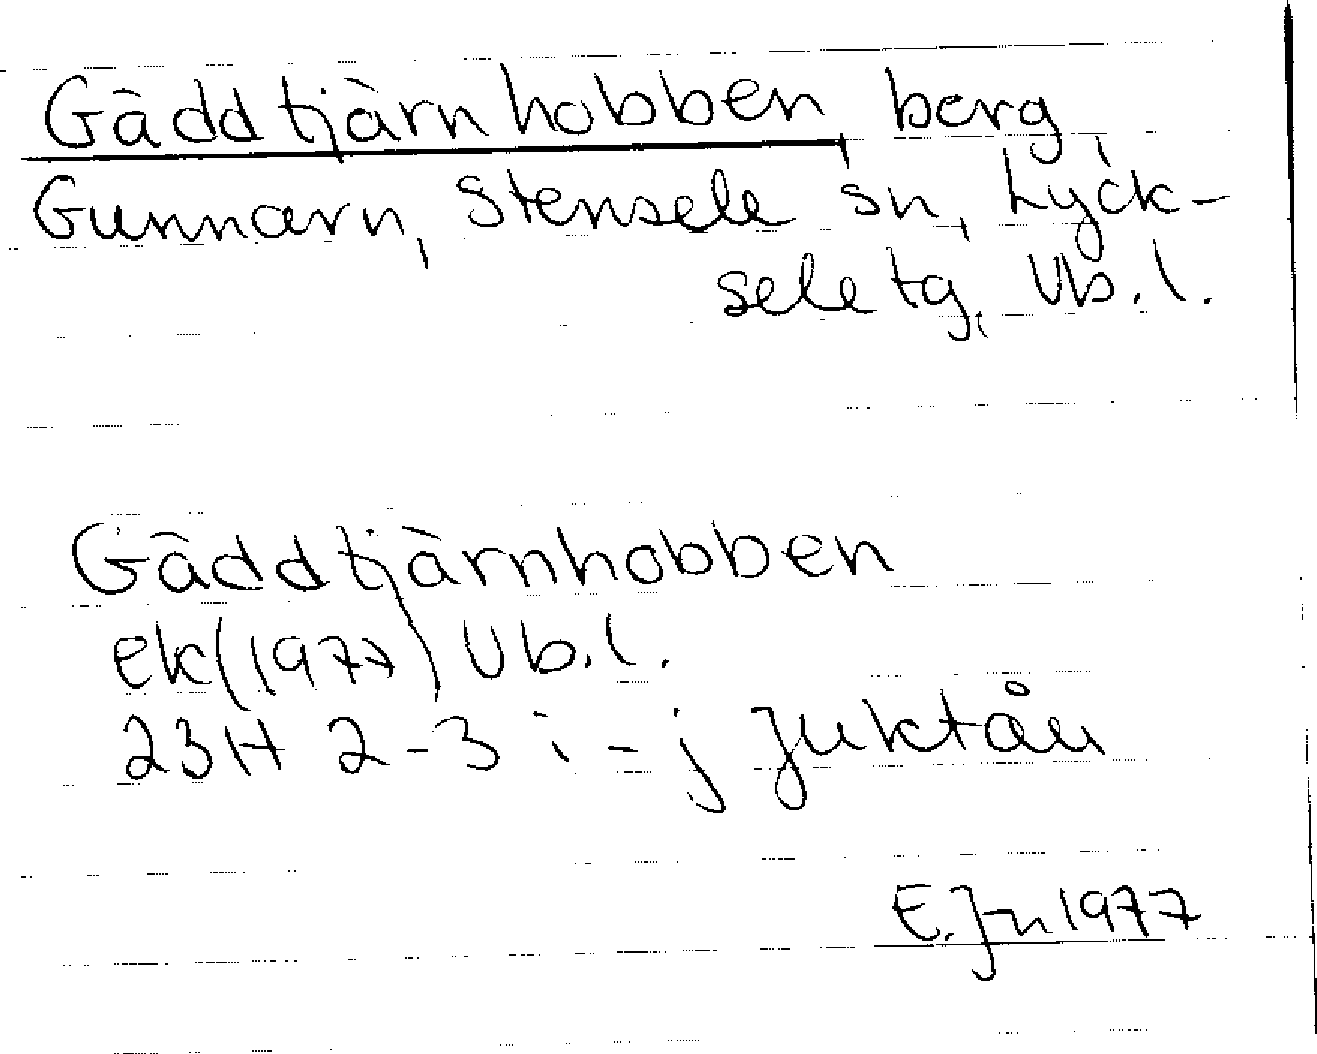 Gäddtjärnhobben, berg,
Gunnarn, Stensele sn, Lyck-
sele tg, Vb. l.
Gäddtjärnhobben
ek (1977) Vb. l.
23H 2-3 i-j Juktån
E. Jn 1977